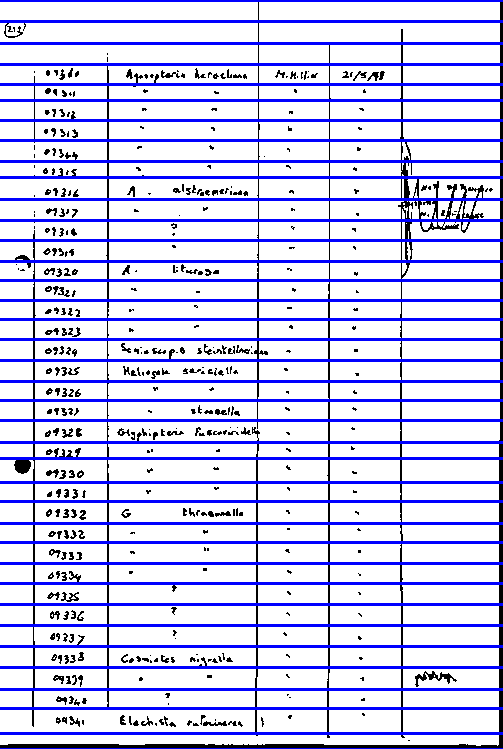 212
09310 Agonopterix heracliana M. Hillier 21/5/98
09311 " " " "
09312 " " " "
09313 " " " "
09314 " " " "
09315 " " " "
09316 A. alstroemeriana " "
09317 " " " "
09318 ? " "
09319 " "
09320 A. liturosa " "
09321 " " " "
09322 " " " "
09323 " " " "
09324 steinkellneriana " "
09325 Heliozela sericiella " "
09326 " " " "
09327 " stannella " "
09328 Glyphipterix fuscoviridella " "
09329 " " " "
09330 " " " "
09331 " " " "
09332 G thrasonella " "
09332 " " " "
09333 " " " "
09334 " " " "
09335 ? " "
09336 ? " "
09337 ? " "
09338 " "
09339 " " " "
09340 ? " "
09341 Elachista rufocinerea " "